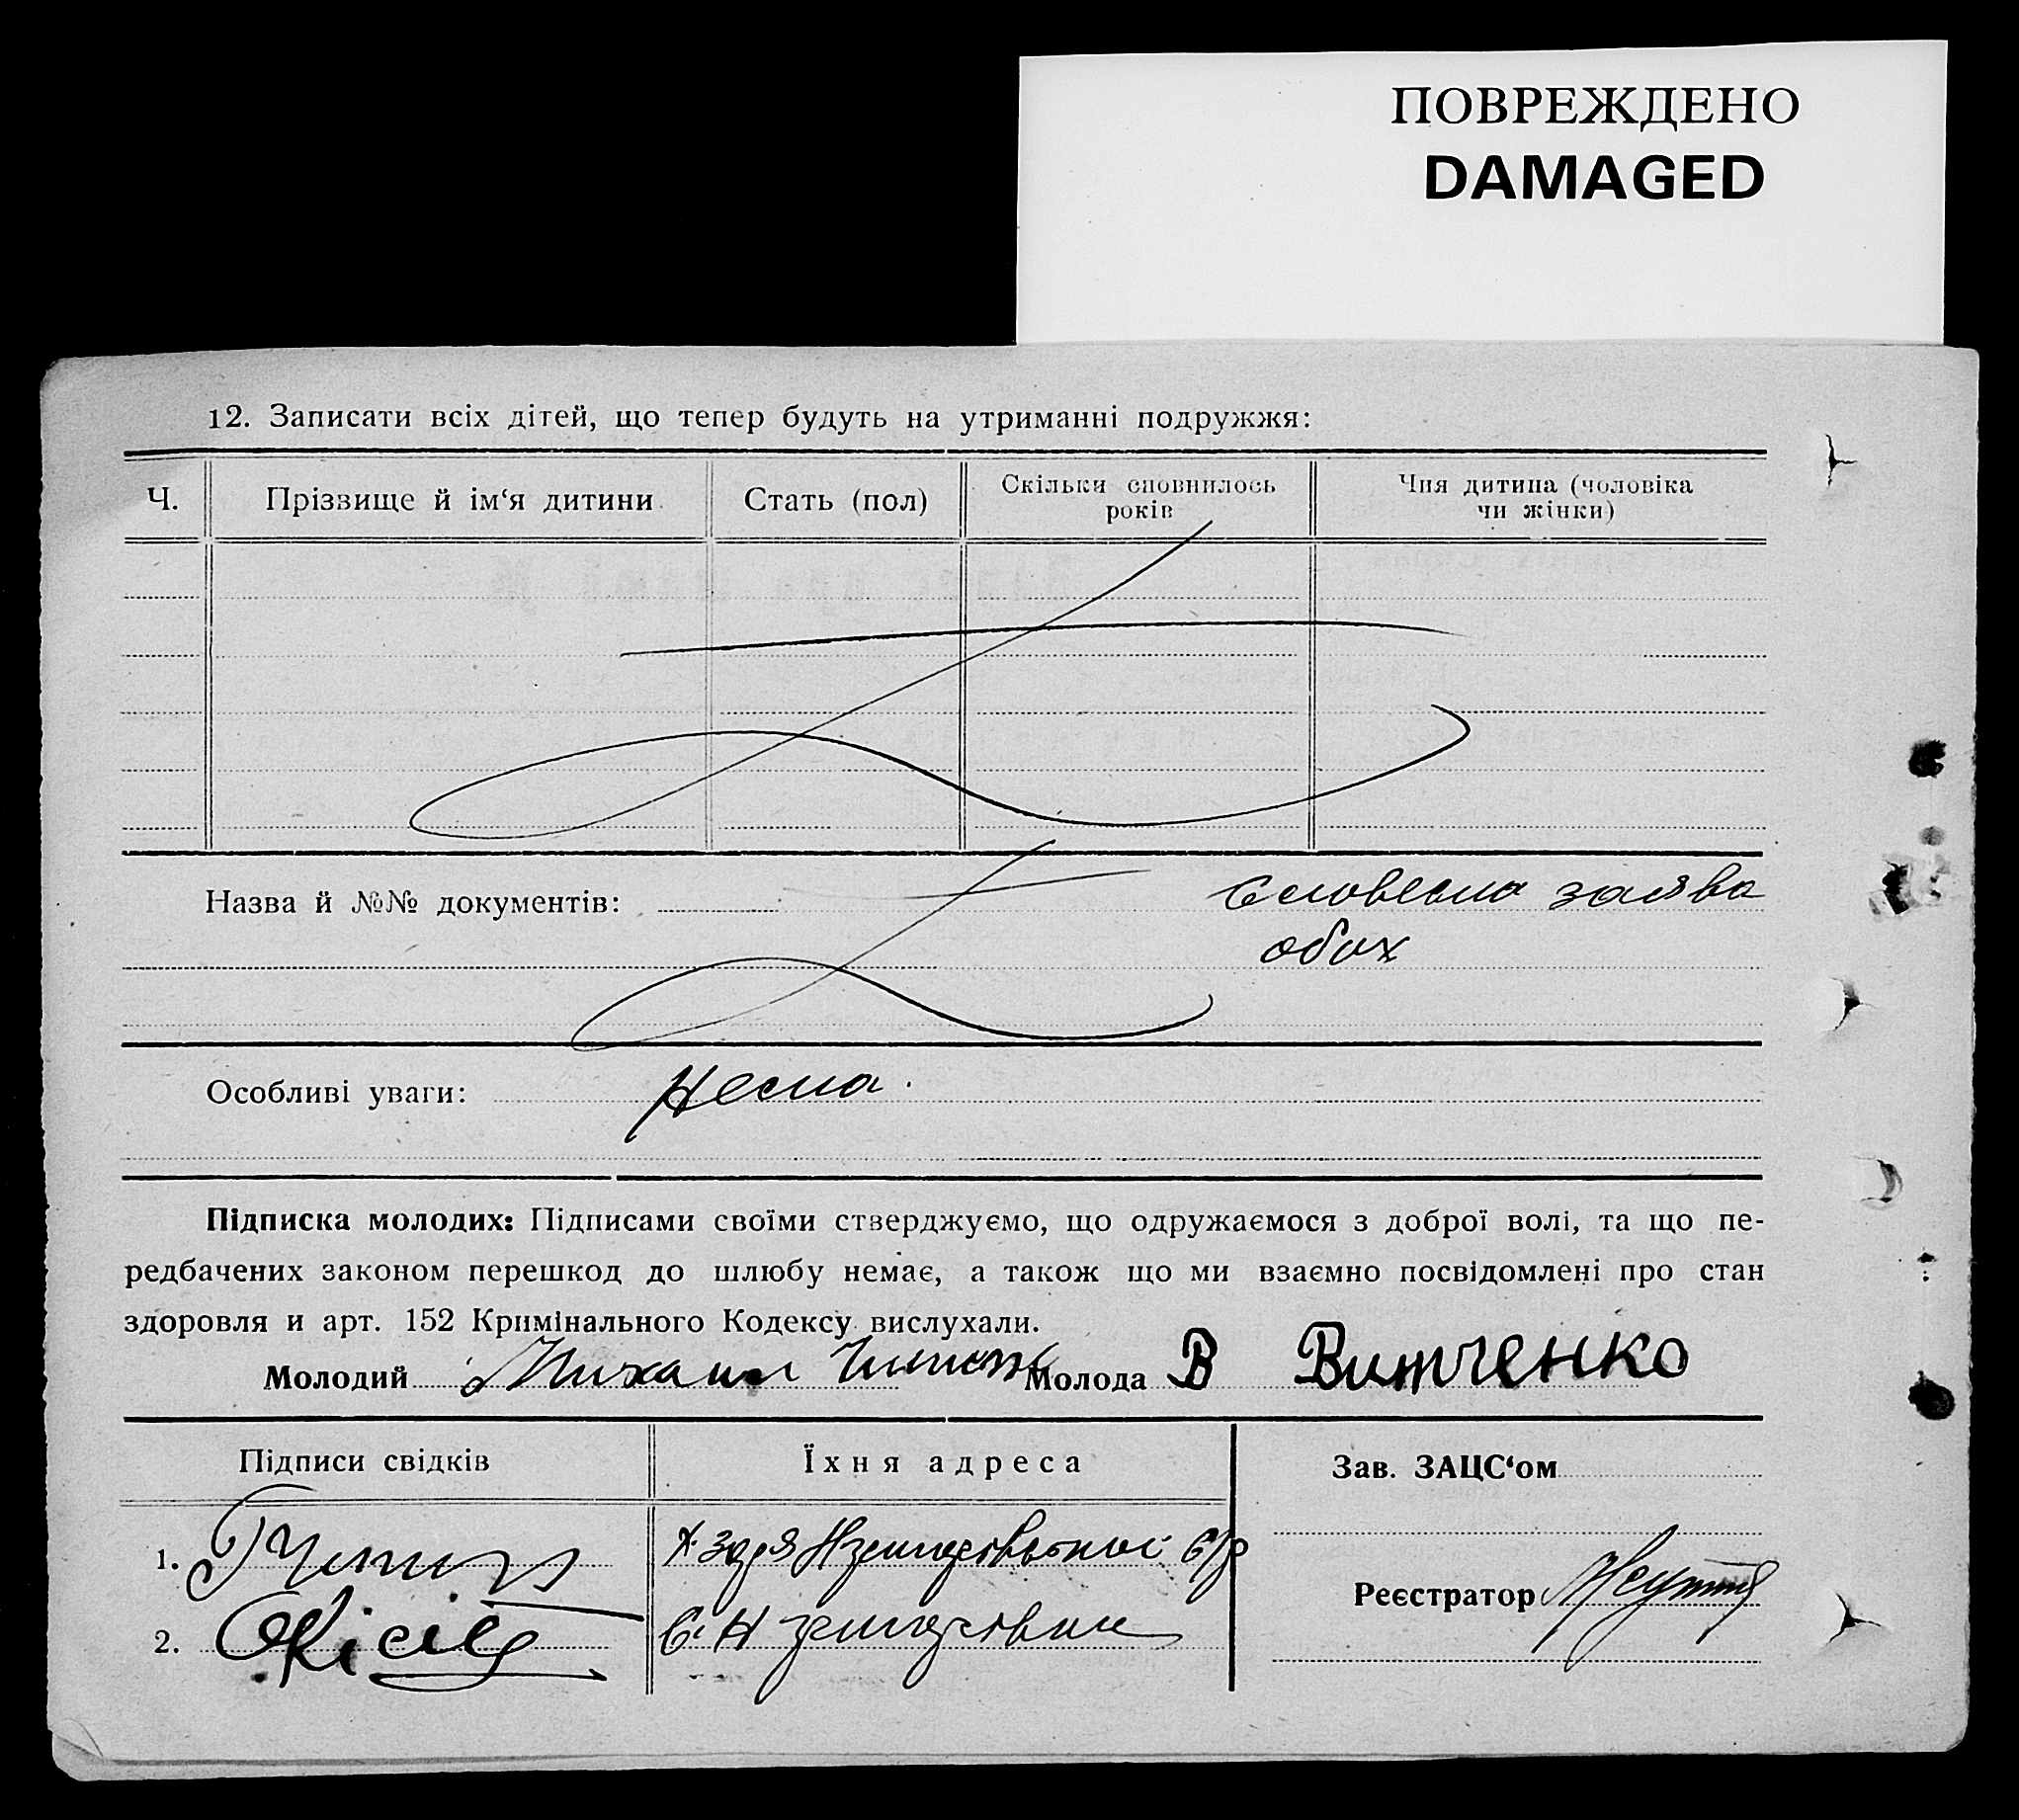 ПОВРЕЖДЕНО
DAMAGED
12. Записати всіх дітей, що тепер будуть на утриманні подружжя:
Ч. Прізвище й ім‘я дитини Стать (пол) Скільки сповнилось років Чия дитина (чоловіка чи жінки)
Назва й №№ документів: Словесна заява
обох
Особливі уваги: Нема.
Підписка молодих: Підписами своїми стверджуємо, що одружаємося з доброї волі, та що пе-
редбачених законом перешкод до шлюбу немає, а також що ми взаємно посвідомлені про стан
здоровля и арт. 152 Кримінального Кодексу вислухали.
Молодий Михаил Молода В Витченко
Підписи свідків Їхня адреса Зав. ЗАЦС‘ом
1.
Реєстратор
2.